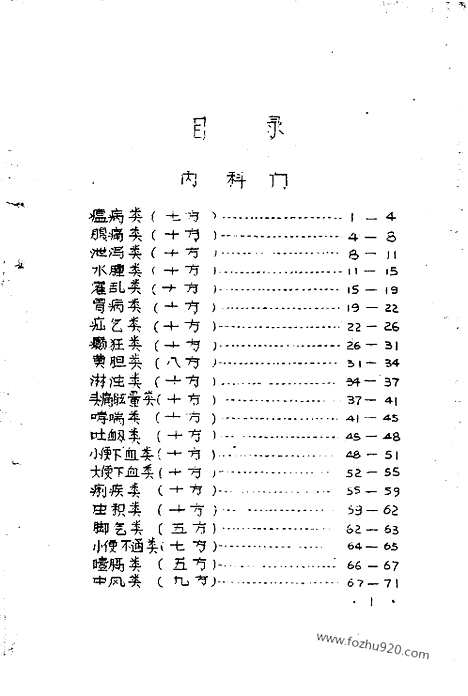 目 录
内 科 门
瘟病类（七方）1－4
腹痛类（十方）4－8
泄泻类（十方）8－11
水肿类（十方）11－15
霍乱类（十方）15－19
胃病类（十方）19－22
疝气类（十方）22－26
癫狂类（十方）26－31
黄胆类（八方）31－34
淋浊类（十方）34－37
头痛眩晕类（十方）37－41
哮喘类（十方）41－45
吐衄类（十方）45－48
小便下血类（十方）48－51
大便下血类（十方）52－55
痢疾类（十方）55－59
虫积类（十方）59－62
脚气类（五方）62－63
小便不通类（七方）64－65
噎膈类（五方）66－67
中风类（九方）67－71
·1·
www.fozhu920.com